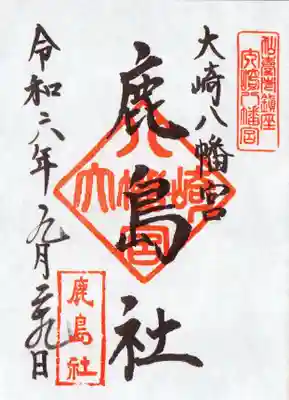 仙臺鎮座
大崎八幡宮
大崎八幡宮
鹿島社
大崎八幡宮
令和六年九月二九日
鹿島社